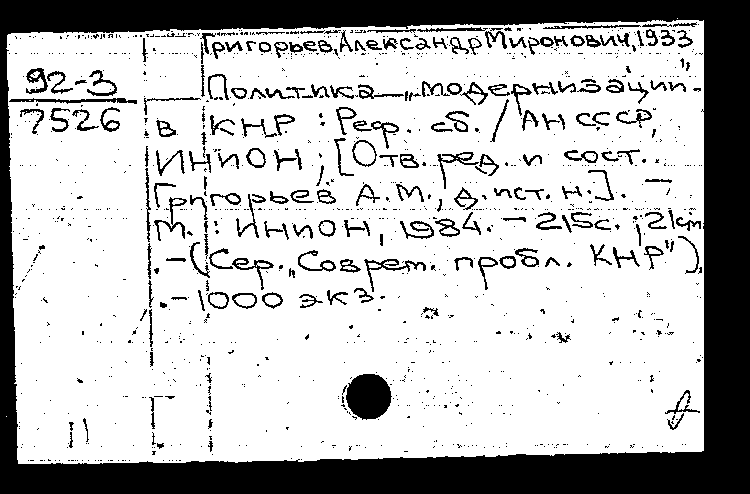 Григорьев, Александр Миронович, 1933
92-3
7526
Политика „модернизации"
в КНР : Реф. сб. / АН СССР,
ИНИОН ; [Отв. ред. и сост.
Григорьев А.М., д. ист. н.]. —
М. : ИНИОН, 1984. — 215с. ; 21см
. — (Сер. „Соврем. пробл. КНР")
. — 1000 экз.
11